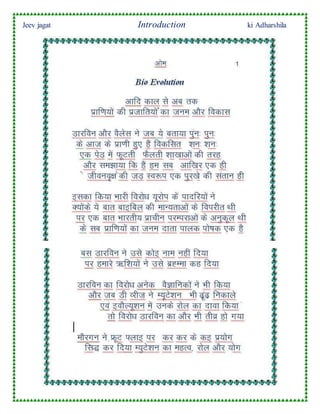 Jeev jagat Introduction ki Adharshila
ओम 1
Bio Evolution
आदि काल से अब तक
प्राणियों की प्रजातियों का जनम और विकास
ठारविन और वैलेस ने जब ये बताया पुनः पुनः
के आज के प्राणी हुए हैं विकसित शनः शनः
एक पेठ़ में फूटती फैलती शाखाओं की तरह
और समझाया कि हैं हम सब आखिर एक ही
जीवनवृक्ष की जठ़ स्वरूप एक पुरखे की संतान ही
इसका किया भारी विरोध यूरोप के पादरियों ने
क्योंके ये बात बाइबिल की मान्यताओं के विपरीत थी
पर एक बात भारतीय प्राचीन परम्पराओं के अनुकूल थी
के सब प्राणियों का जनम दाता पालक पोषक एक है
बस ठारविन ने उसे कोइ नाम नहीं दिया
पर हमारे ऋशियों ने उसे ब्रहम्मा कह दिया
ठारविन का विरोध अनेक वैज्ञानिकों ने भी किया
और जब ठी व्रीज़ ने म्यूटेशन भी ढूंढ़ निकाले
एवं इवौल्यूशन में उनके रोल का दावा किया
तो विरोध ठारविन का और भी तीव्र हो गया
मौरगन ने फ्रूट फ्लाइ पर कर कर के कइ प्रयोग
सिद्ध कर दिया म्युटेशन का महत्व, रोल और योग